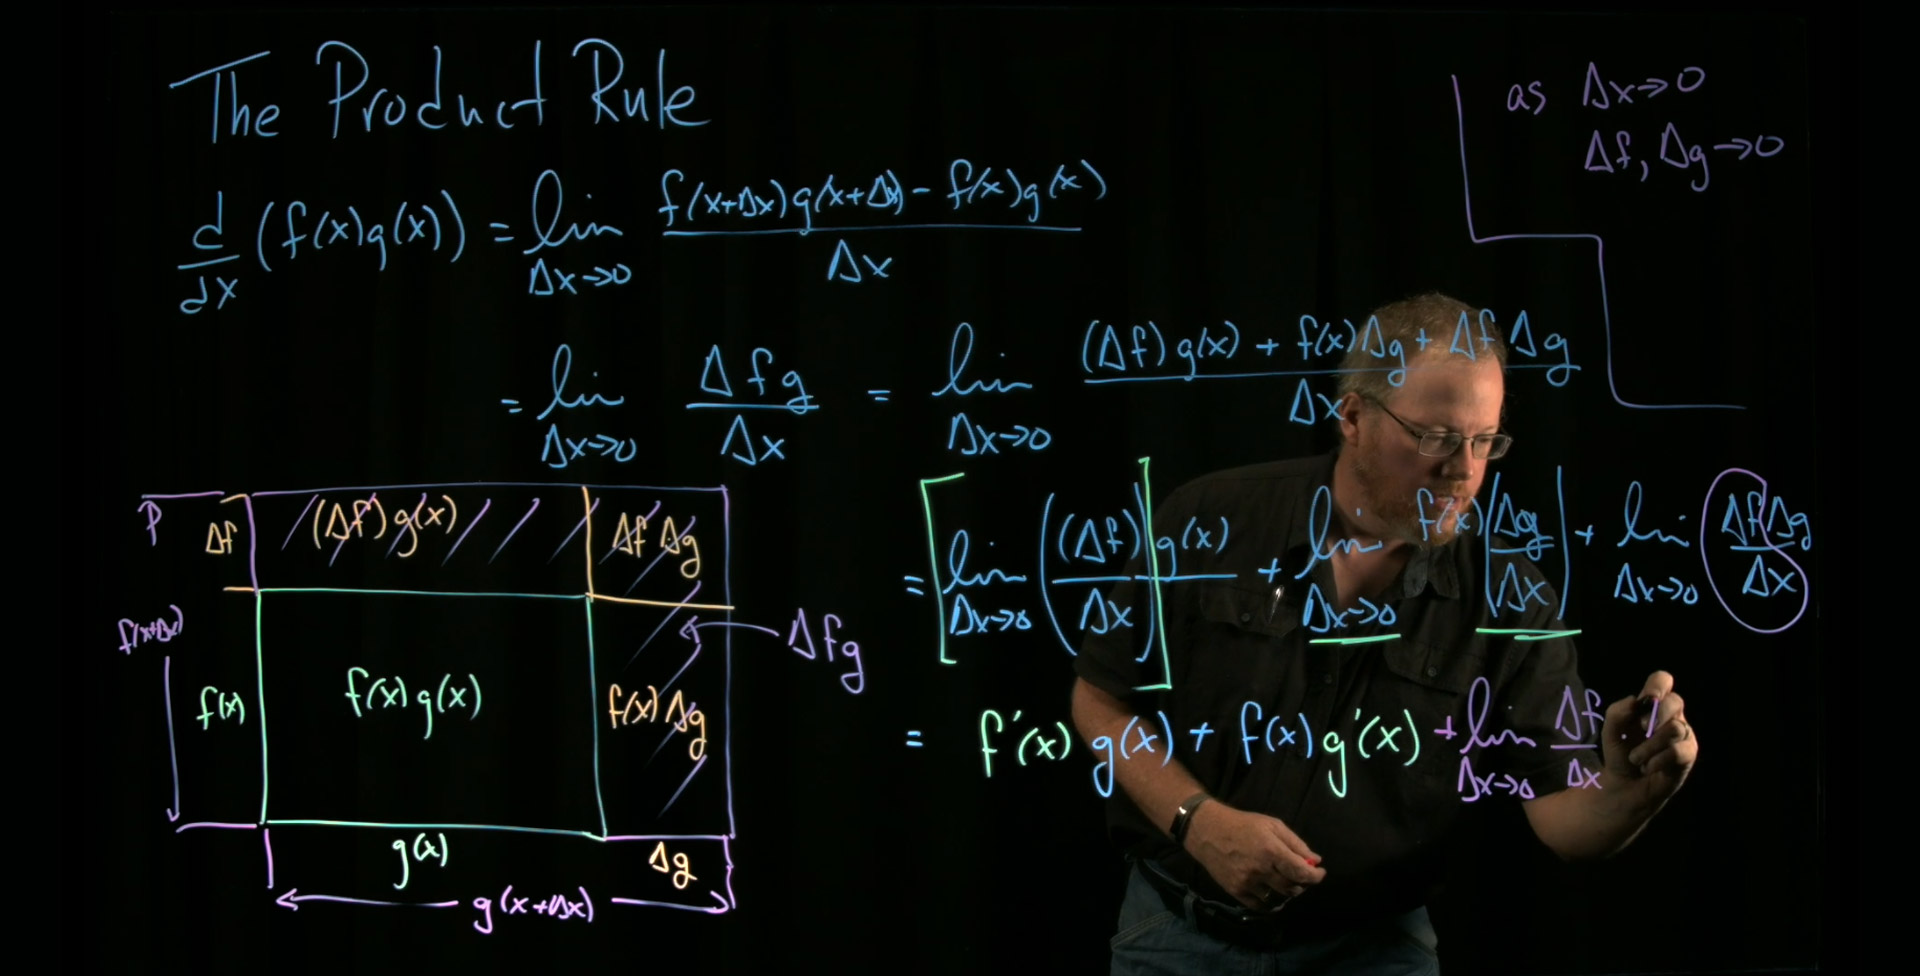 The Product Rule
as Δx→0
Δf, Δg→0
d/dx (f(x)g(x)) = lim Δx→0 (f(x+Δx)g(x+Δx) - f(x)g(x))/Δx
= lim Δx→0 Δfg/Δx = lim Δx→0 ((Δf)g(x) + f(x)Δg + ΔfΔg)/Δx
= [lim Δx→0 ((Δf)/Δx)] g(x) + lim Δx→0 f(x)(Δg/Δx) + lim Δx→0 ΔfΔg/Δx
= f'(x) g(x) + f(x) g'(x) + lim Δx→0 Δf/Δx ·
Δf
(Δf)g(x)
Δf Δg
f(x+Δx)
Δfg
f(x)
f(x)g(x)
f(x)Δg
g(x)
Δg
g(x+Δx)